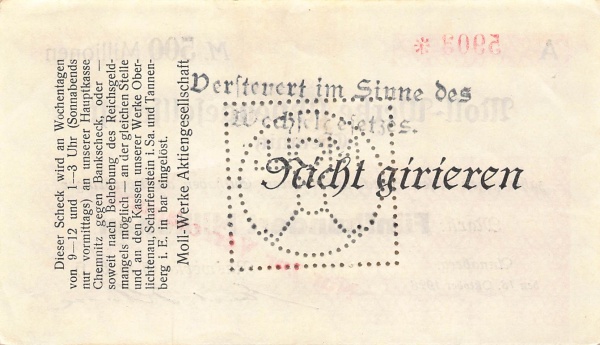 Dieser Scheck wird an Wochentagen
von 9—12 und 1—3 Uhr (Sonnabends
nur vormittags) an unserer Hauptkasse
Chemnitz gegen Bankscheck, oder —
soweit nach Behebung des Reichsgeld-
mangels möglich — an der gleichen Stelle
und an den Kassen unserer Werke Ober-
lichtenau, Scharfenstein i. Sa. und Tannen-
berg i. E. in bar eingelöst.
Moll-Werke Aktiengesellschaft
Versteuert im Sinne des
Wechselgesetzes.
Nicht girieren
M. 500 Millionen
5903 *
A